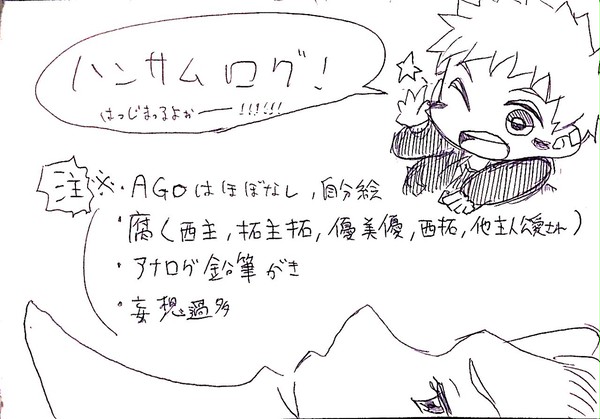 ハンサムログ!
はっじまっるよぉー!!!!!!
注※・AGOはほぼなし,自分絵
・腐く西主,拓主拓,優美優,西拓,他主人公愛され)
・アナログ鉛筆がき
・妄想過多